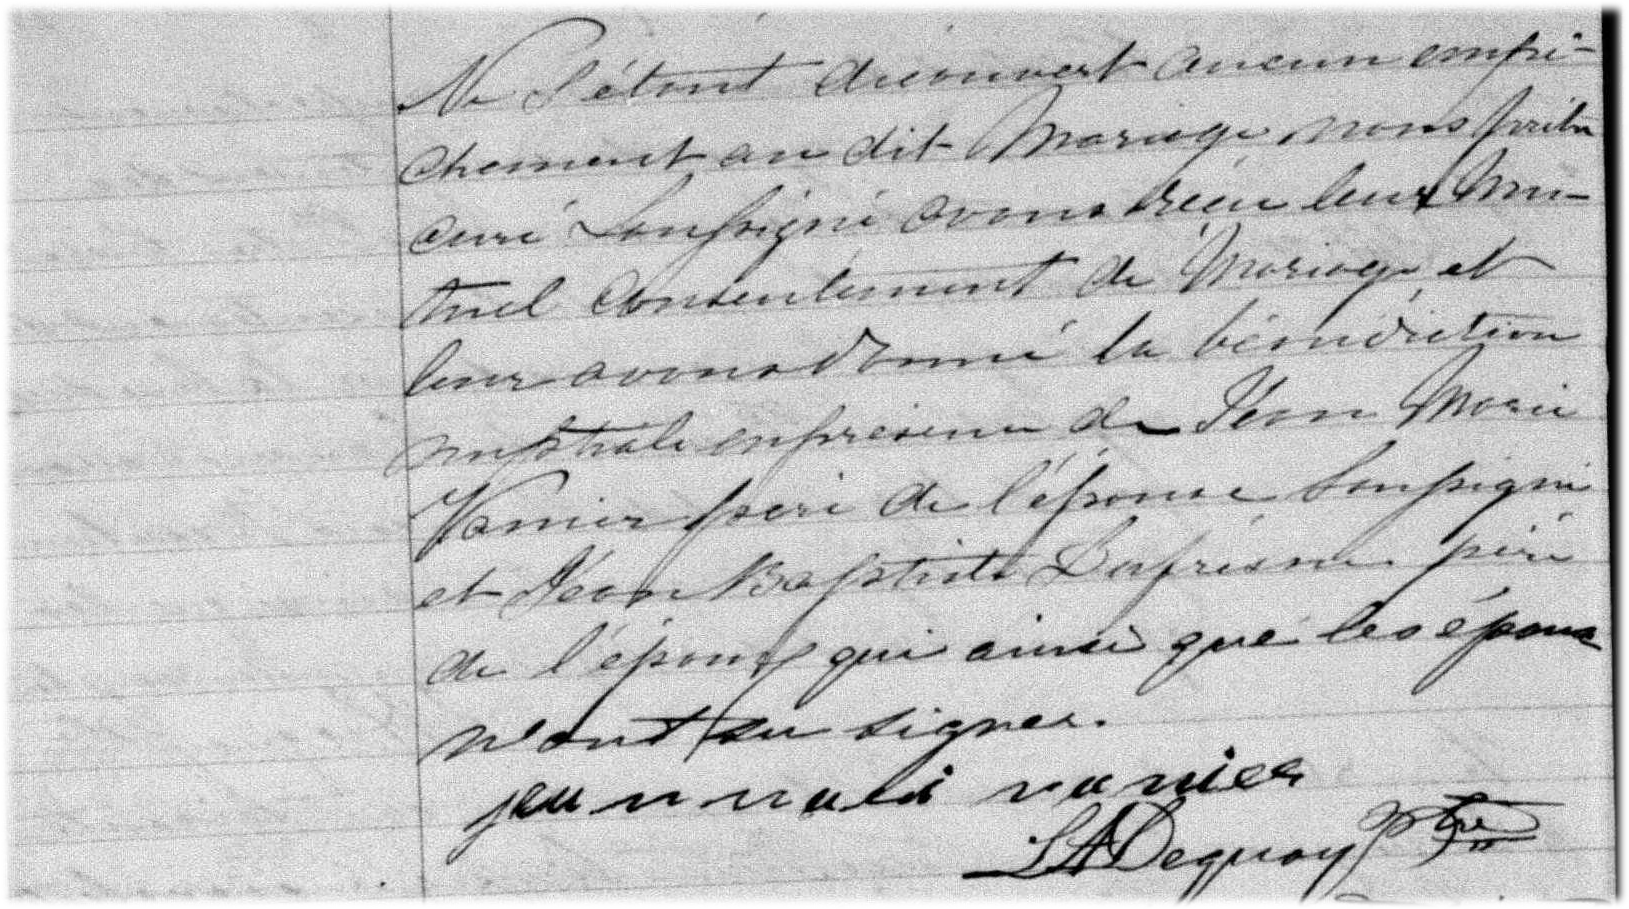 Ne s'étant découvert aucun empê-
chement au dit Mariage nous prêtre
curé soussigné avons reçu leur mu-
tuel consentement de Mariage et
leur avons donné la bénédiction
nuptiale en présence de Jean Marie
Vanier père de l'épouse soussigné
et Jean Baptiste Dufresne père
de l'époux qui ainsi que les époux
n'ont su signer.
jean marie vanier
LADequoy Ptre